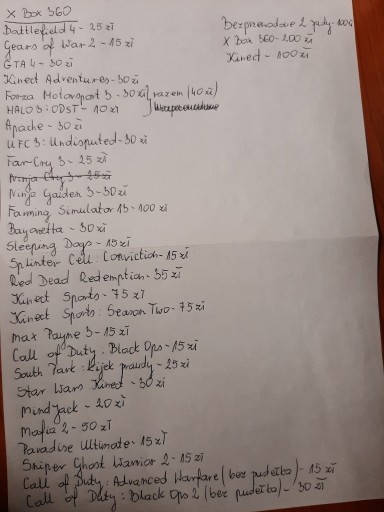 X Box 360
Battlefield 4 - 25 zł
Gears of War 2 - 15 zł
GTA 4 - 30 zł
Kinect Adventures - 30 zł
Forza Motorsport 3 - 30 zł } razem (40 zł)
HALO 3: ODST - 10 zł
Apache - 30 zł
UFC 3: Undisputed - 30 zł
Far Cry 3 - 25 zł
Ninja Cry 3 - 25 zł
Ninja Gaiden 3 - 30 zł
Farming Simulator 15 - 100 zł
Bayonetta - 30 zł
Sleeping Dogs - 15 zł
Splinter Cell: Conviction - 15 zł
Red Dead Redemption - 35 zł
Kinect Sports - 75 zł
Kinect Sports: Season Two - 75 zł
Max Payne 3 - 15 zł
Call of Duty: Black Ops - 15 zł
South Park: Kijek prawdy - 25 zł
Star Wars Kinect - 30 zł
MindJack - 20 zł
Mafia 2 - 50 zł
Paradise Ultimate - 15 zł
Sniper Ghost Warrior 2 - 15 zł
Call of Duty: Advanced Warfare (bez pudełka) - 15 zł
Call of Duty: Black Ops 2 (bez pudełka) - 30 zł
Bezprzewodowe 2 pady - 100
X Box 360 - 200 zł
Kinect - 100 zł